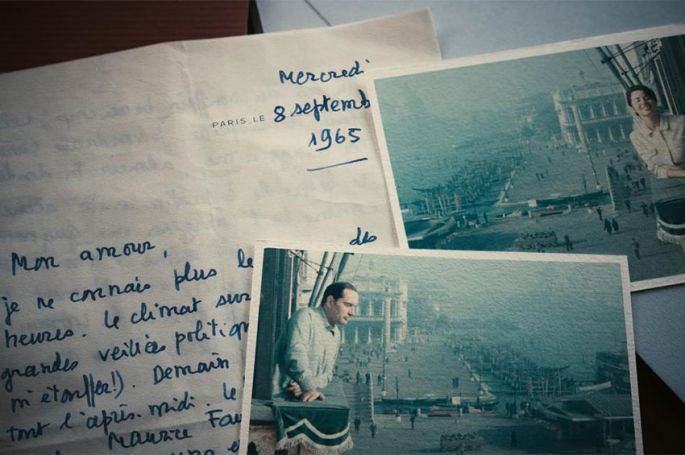 Mercredi
PARIS, LE 8 septemb
1965
Mon amour,
je ne connais plus le des
heures. Le climat sur
grandes veillées politiq
m'étouffer!). Demain
tout l'après-midi. Le
Maurice Fau